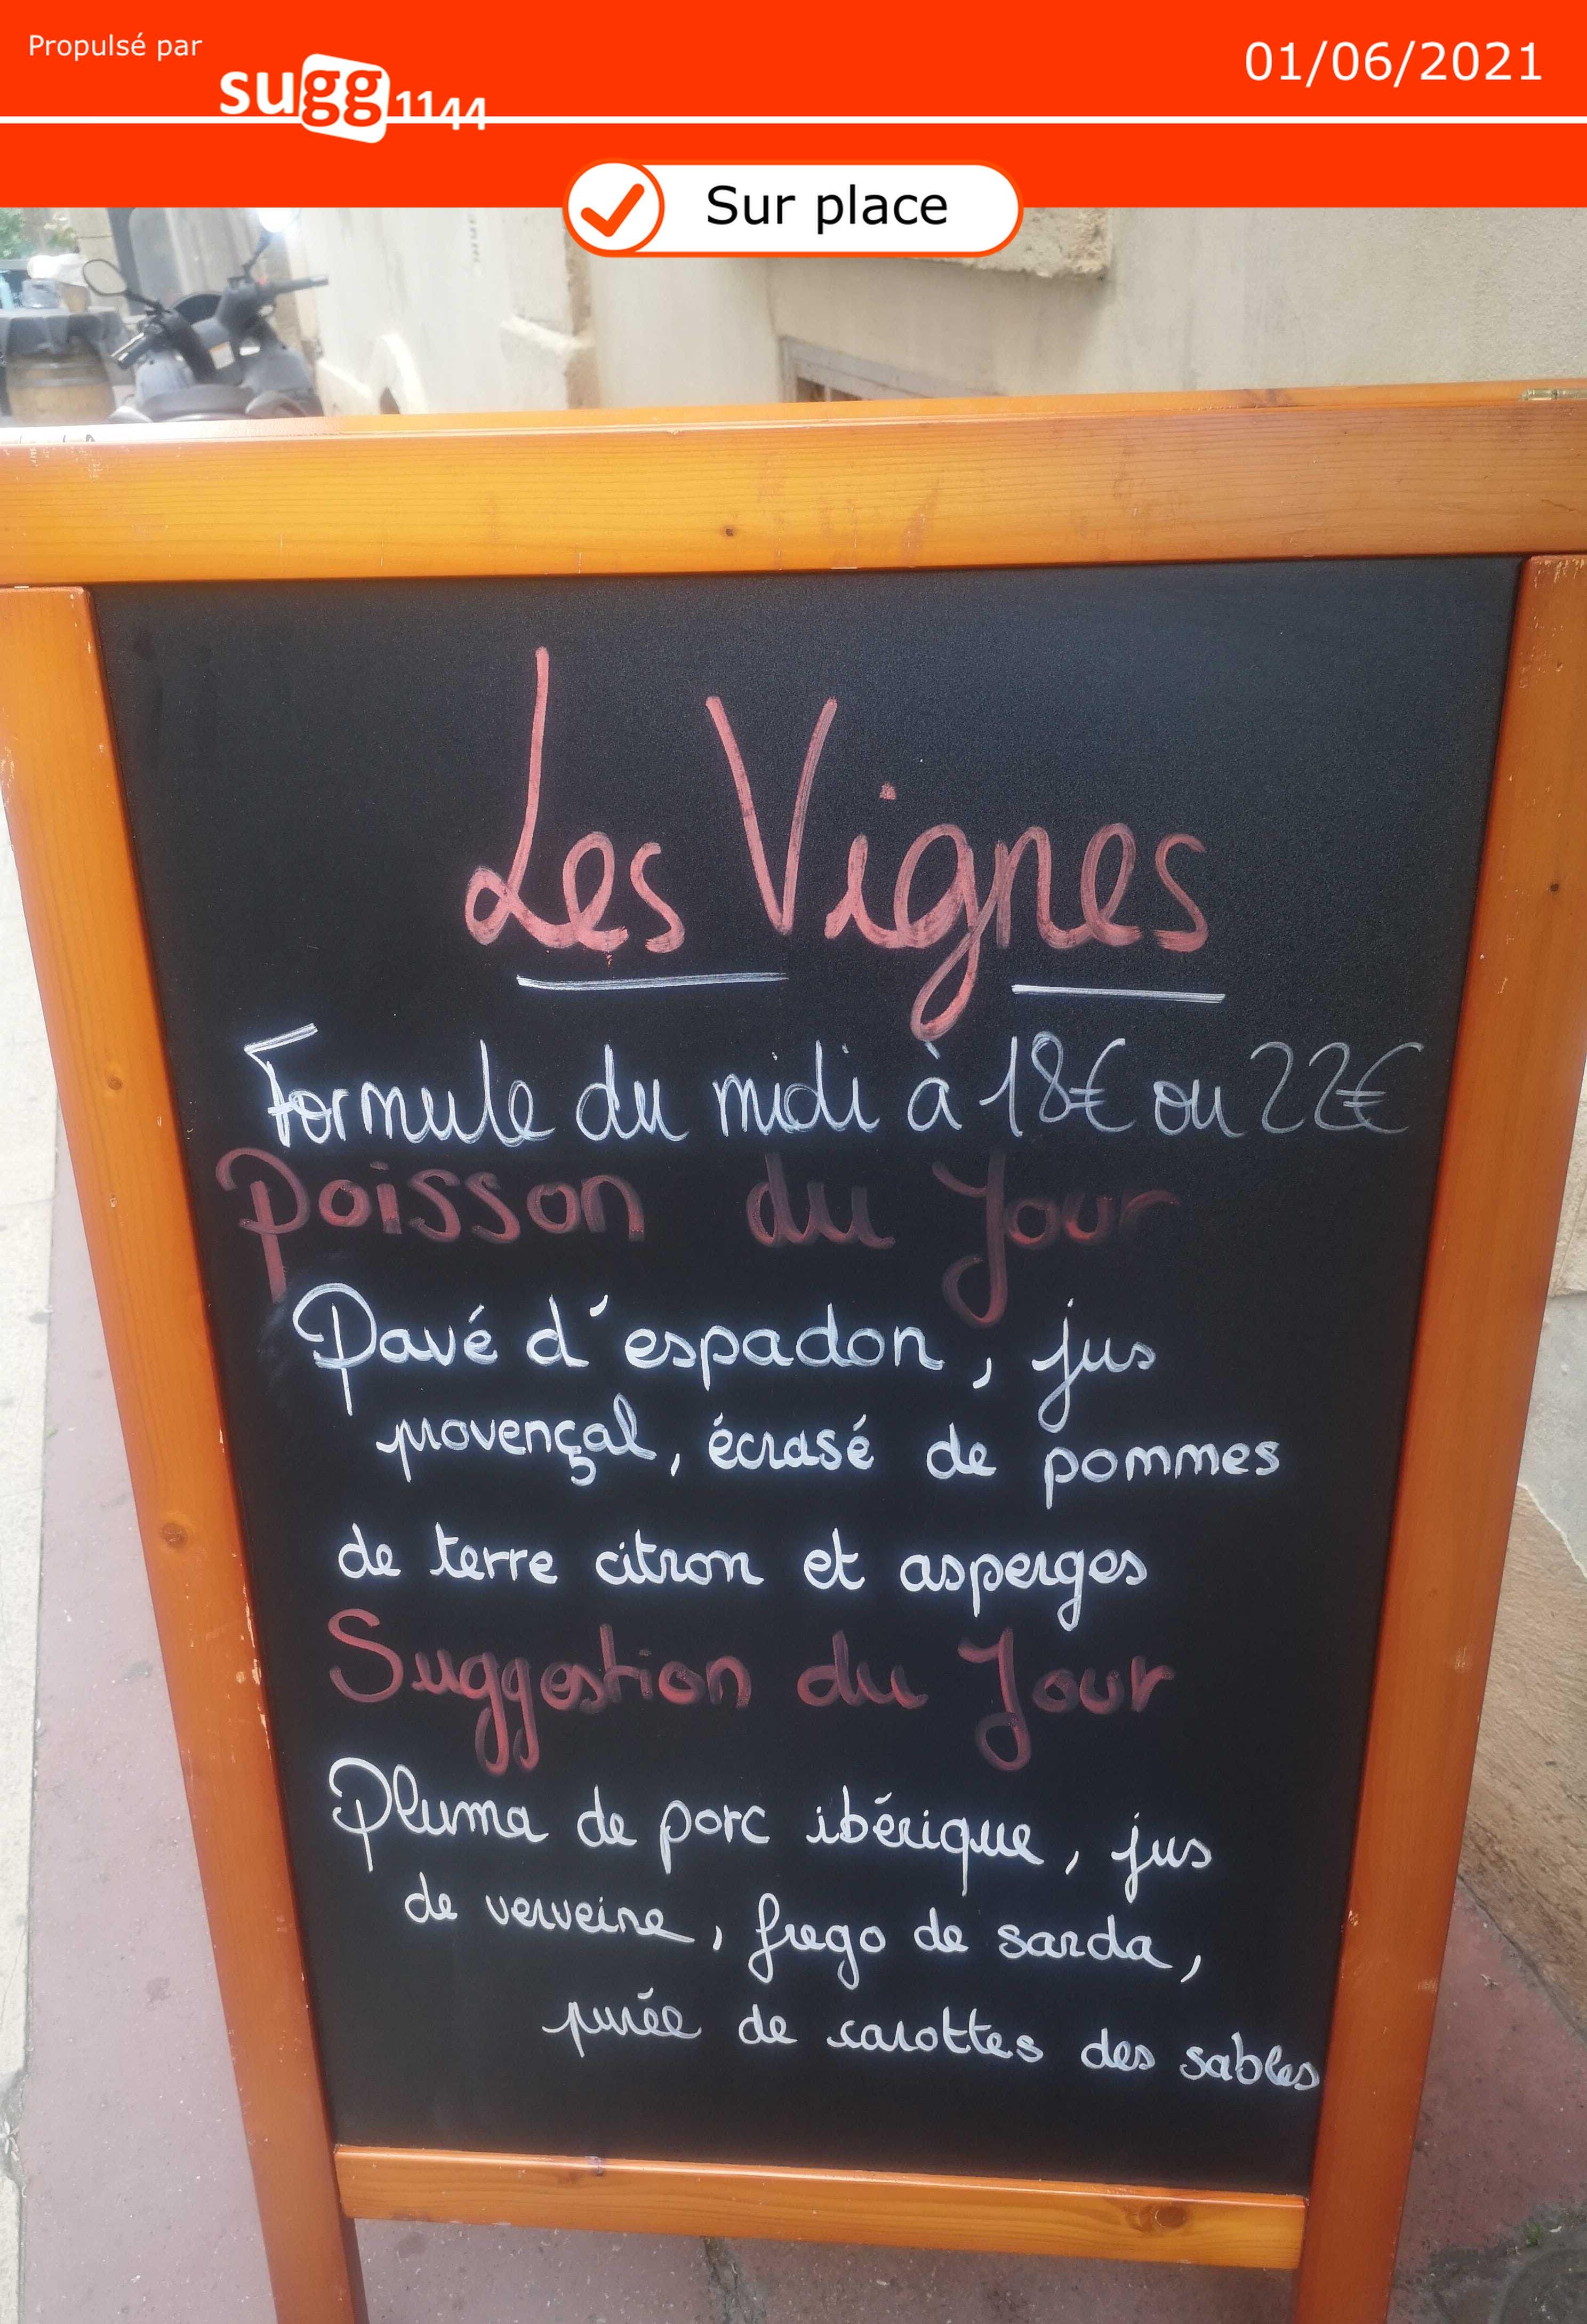 Propulsé par
sugg1144
01/06/2021
Sur place
Les Vignes
Formule du midi à 18€ ou 22€
Poisson du Jour
Pavé d'espadon, jus
provençal, écrasé de pommes
de terre citron et asperges
Suggestion du Jour
Pluma de porc ibérique, jus
de verveine, frego de sarda,
purée de carottes des sables